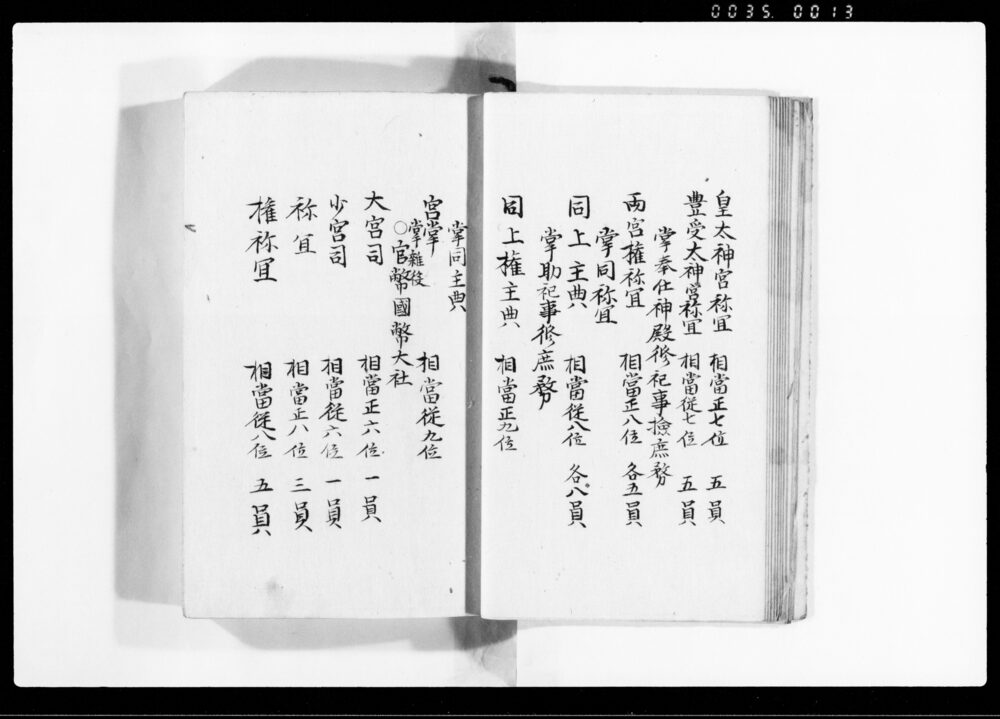 0035. 0013
皇太神宮祢冝 相當正七位 五員
豊受太神宮祢冝 相當従七位 五員
掌奉仕神殿修祀事撿庶務
兩宮權祢冝 相當正八位 各五員
掌同祢冝
同上主典 相當従八位 各八員
掌助祀事修庶務
同上權主典 相當正九位
掌同主典
宮掌 相當従九位
掌雜役
○官幣國幣大社
大宮司 相當正六位 一員
少宮司 相當従六位 一員
祢冝 相當正八位 三員
權祢冝 相當従八位 五員